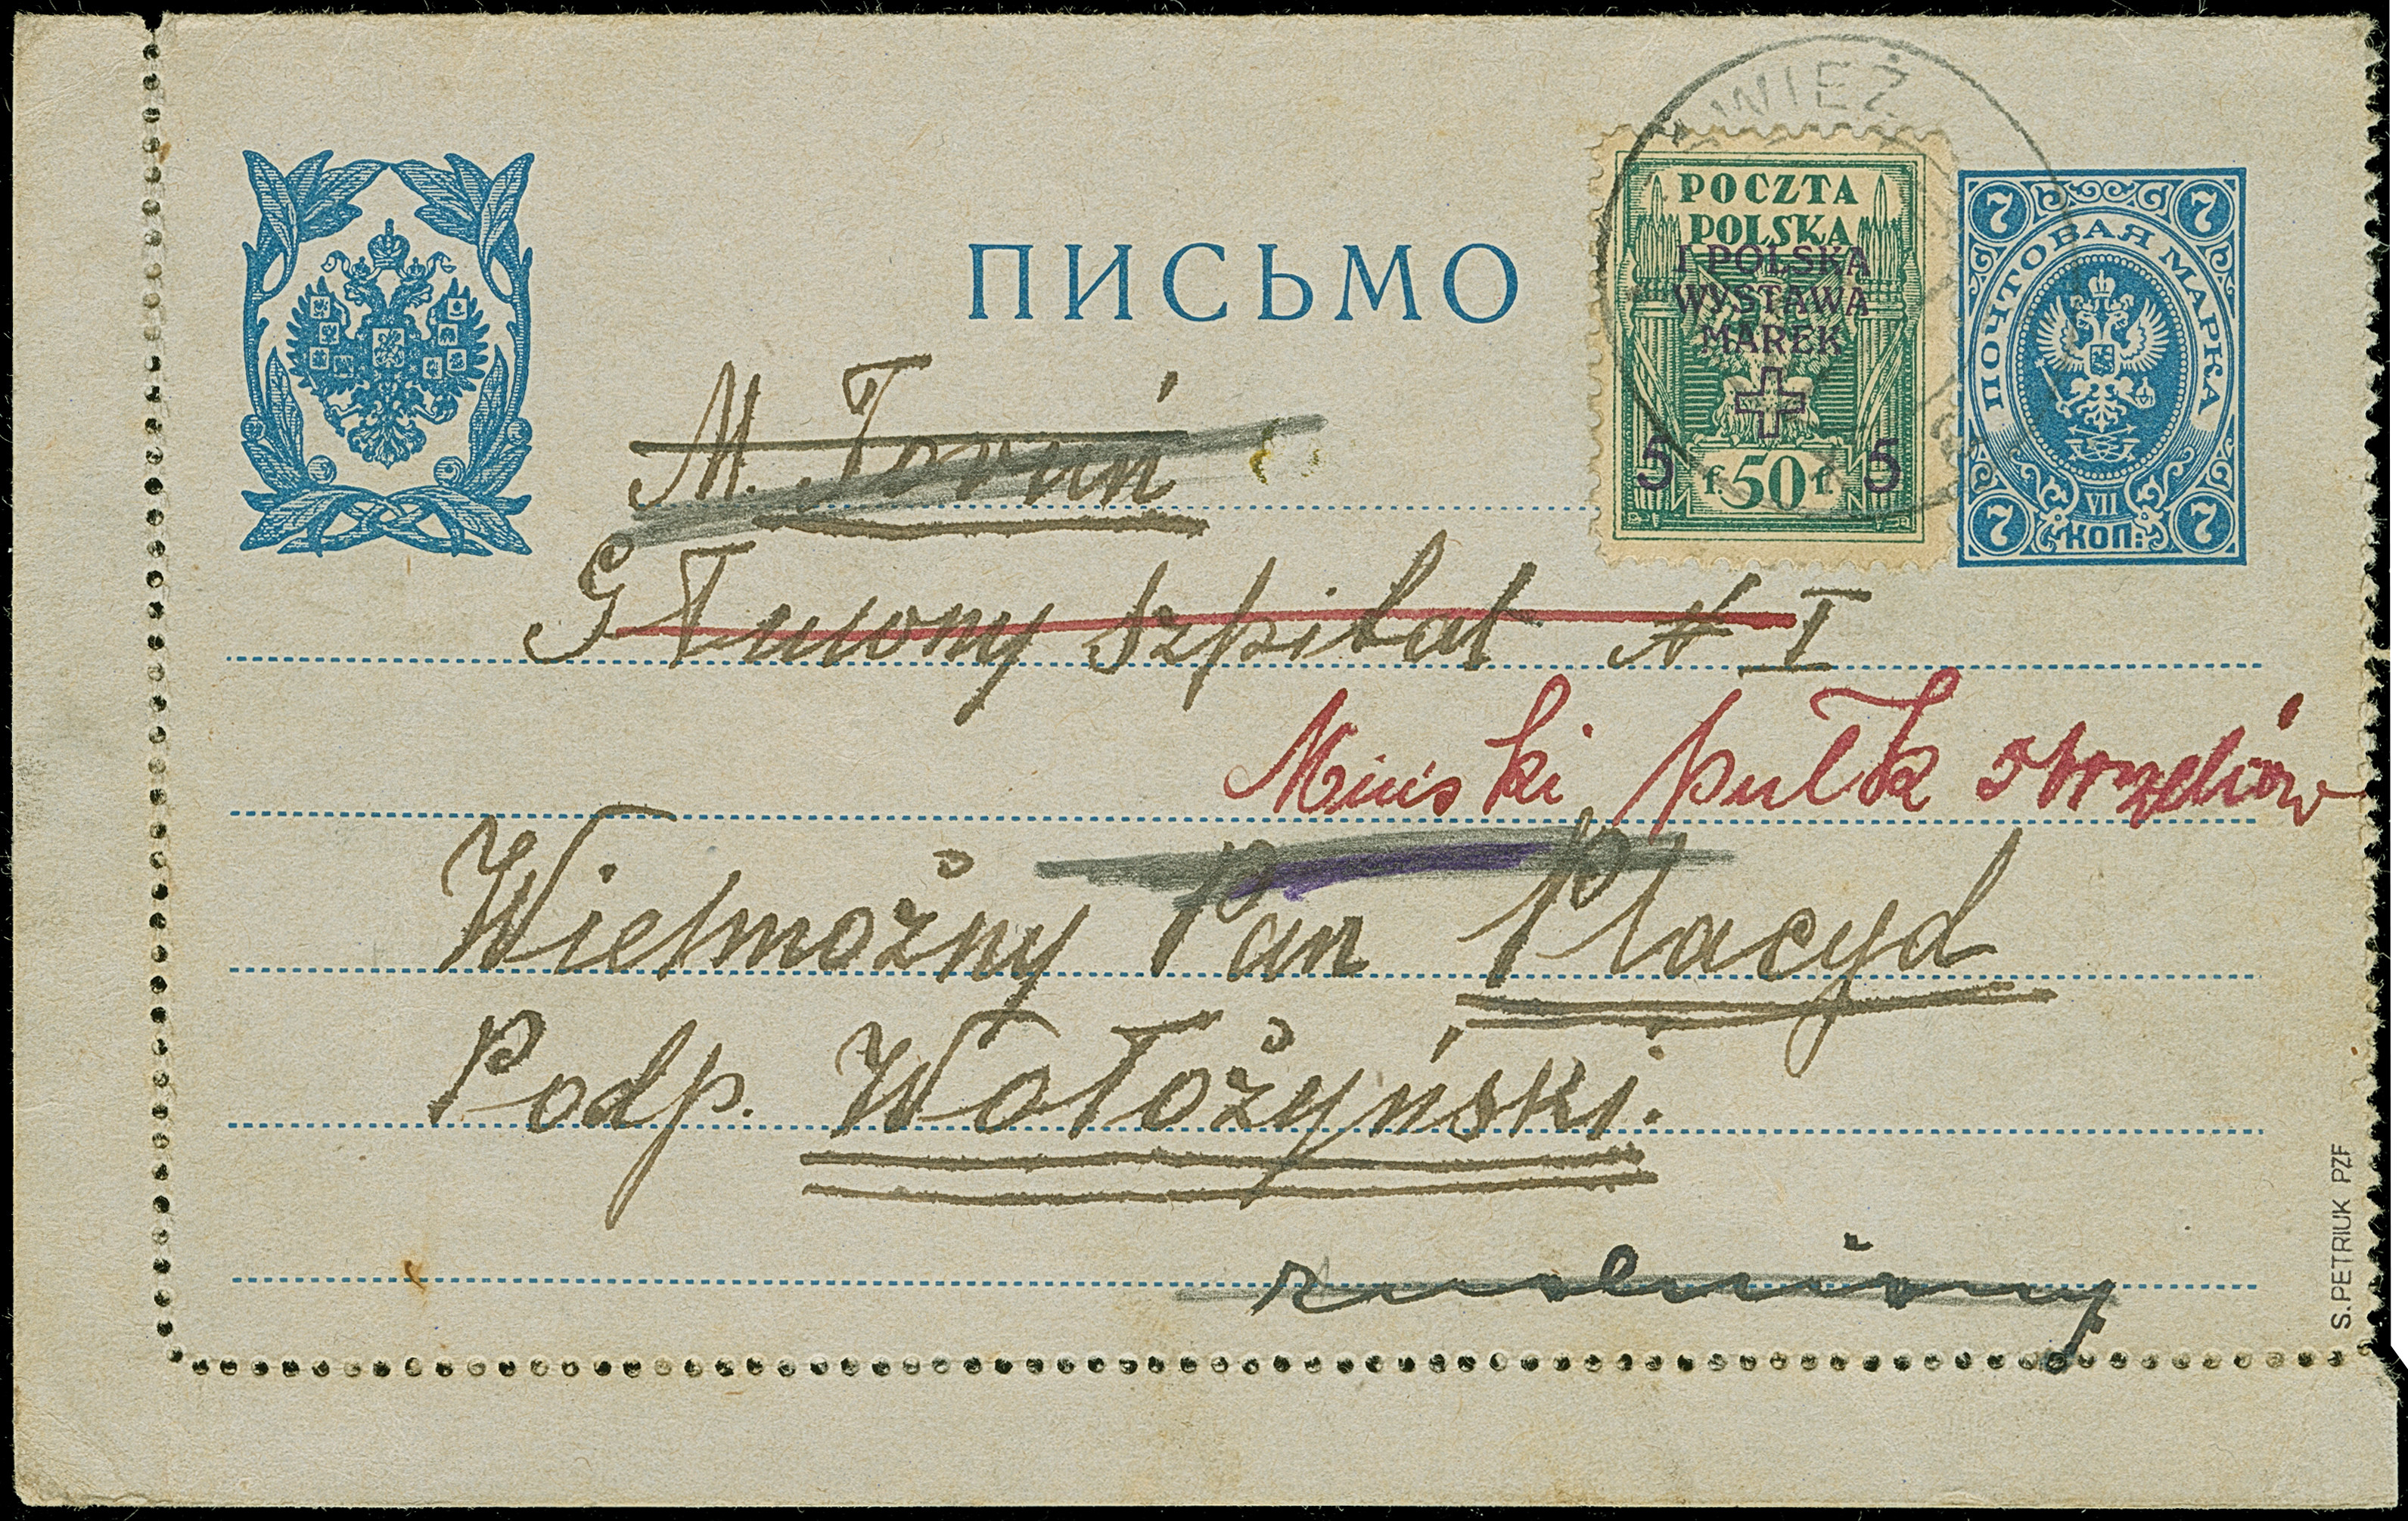 WIEŻ
ПИСЬМО
POCZTA
POLSKA
I POLSKA
WYSTAWA
MAREK
5 5
f. 50 f.
7 7
ПОЧТОВАЯ МАРКА
VII
7 КОП. 7
M. Toruń
Główny Szpital № I
Miński pułk strzelców
Wielmożny Pan Placyd
Podp. Wołożyński.
S. PETRIUK PZF